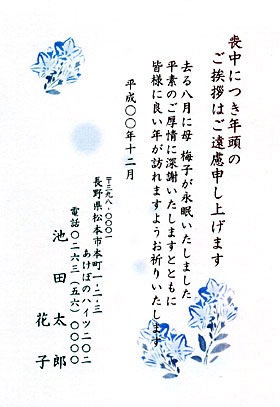 喪中につき年頭の
ご挨拶はご遠慮申し上げます
去る八月に母 梅子が永眠いたしました
平素のご厚情に深謝いたしますとともに
皆様に良い年が訪れますようお祈りいたします
平成〇〇年十二月
〒三九八-〇〇〇一
長野県松本市本町一-二-三
あけぼのハイツ二〇二
電話〇二六三(五六)〇〇〇〇
池田太郎
花子